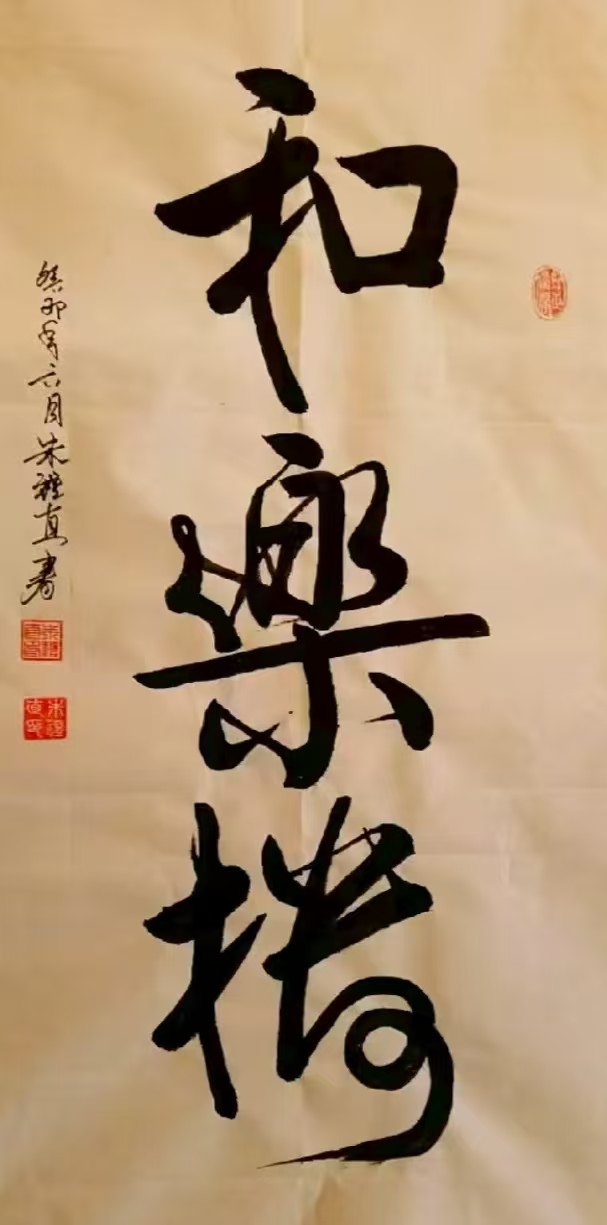 和樂橋
癸卯年六月朱禮真書